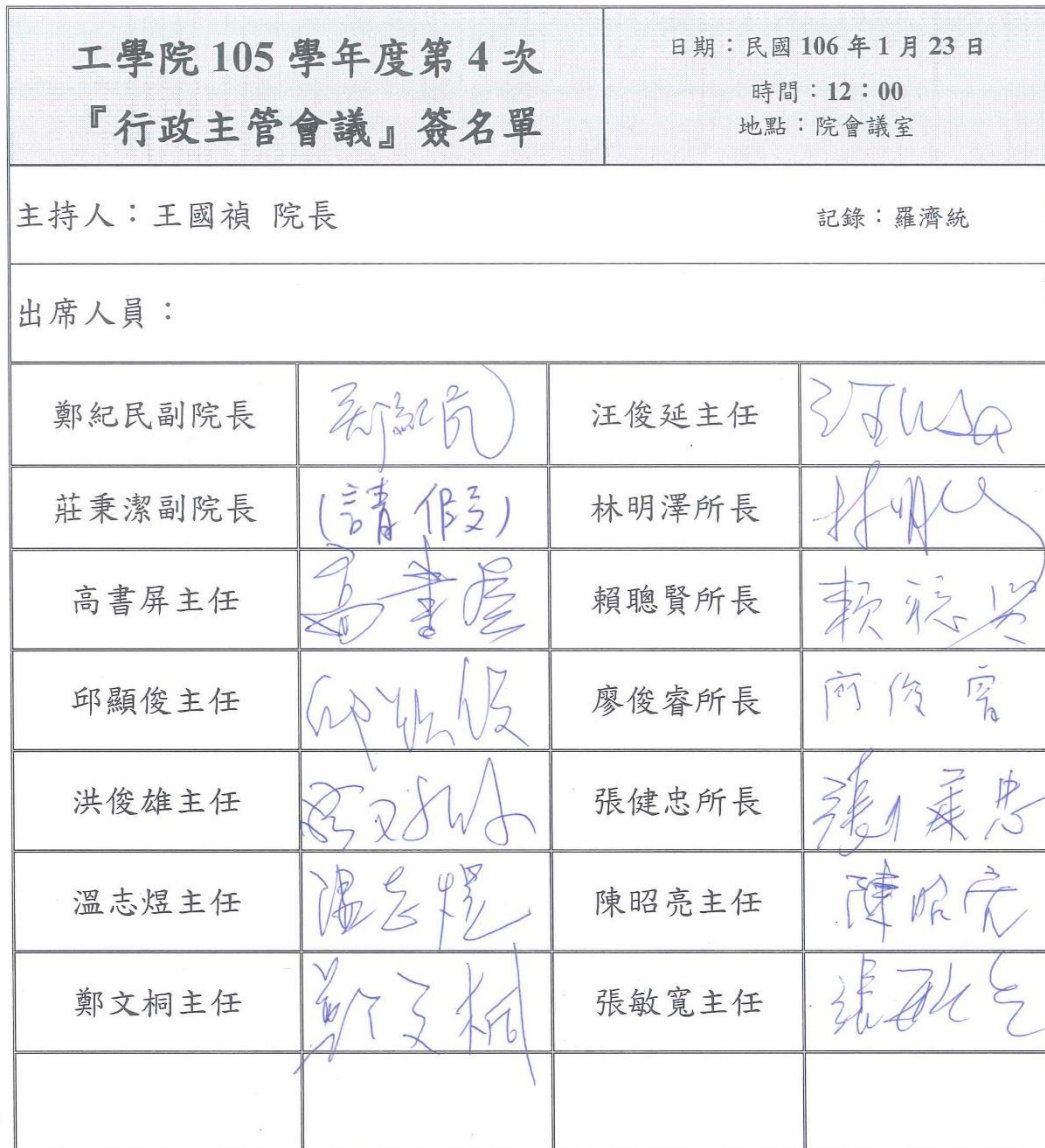 工學院 105 學年度第 4 次
『行政主管會議』簽名單
日期：民國 106 年 1 月 23 日
時間：12：00
地點：院會議室
主持人：王國禎 院長
記錄：羅濟統
出席人員：
鄭紀民副院長 鄭紀民 汪俊延主任
莊秉潔副院長 (請假) 林明澤所長
高書屏主任 高書屏 賴聰賢所長 賴聰賢
邱顯俊主任 邱顯俊 廖俊睿所長 廖俊睿
洪俊雄主任 張健忠所長 張健忠
溫志煜主任 溫志煜 陳昭亮主任 陳昭亮
鄭文桐主任 鄭文桐 張敏寬主任 張敏寬